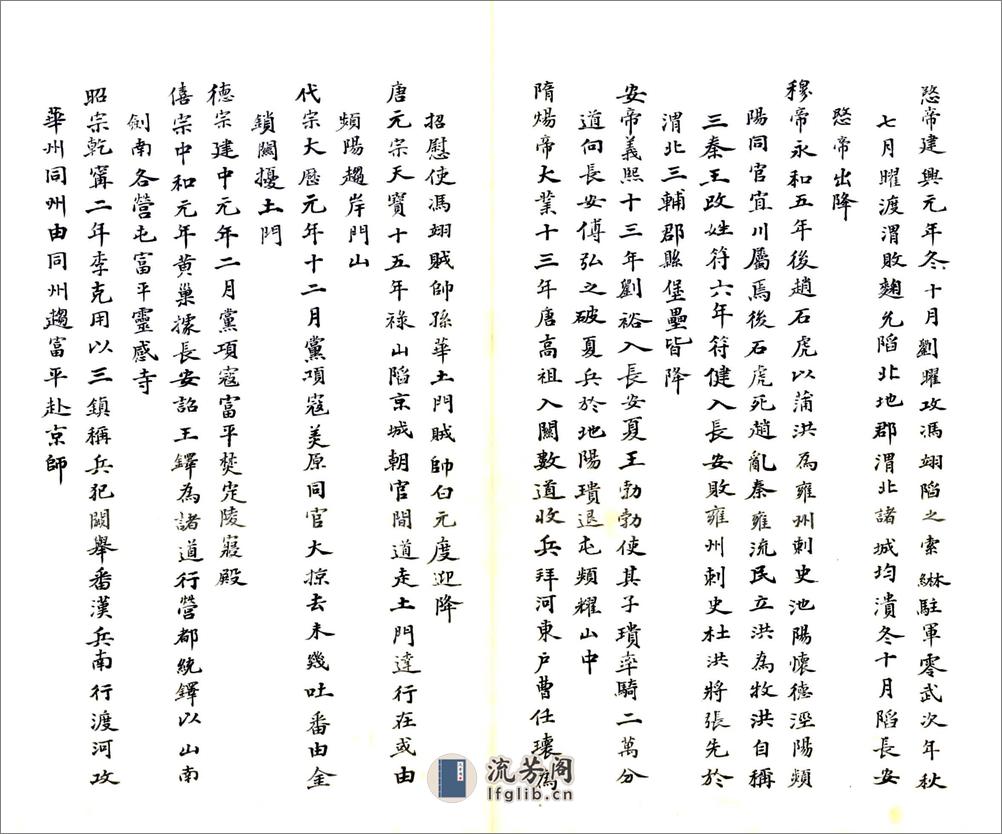 愍帝建興元年冬十月劉曜攻馮翊陷之索綝駐軍零武次年秋
七月曜渡渭敗麹允陷北地郡渭北諸城均潰冬十月陷長安
愍帝出降
穆帝永和五年後趙石虎以蒲洪為雍州刺史池陽懷德涇陽頻
陽同官宜川屬焉後石虎死趙亂秦雍流民立洪為牧洪自稱
三秦王改姓符六年符健入長安敗雍州刺史杜洪將張先於
渭北三輔郡縣堡壘皆降
安帝義熙十三年劉裕入長安夏王勃勃使其子璝率騎二萬分
道向長安傅弘之破夏兵於池陽璝退屯頻耀山中
隋煬帝大業十三年唐高祖入關數道收兵拜河東户曹任瓌為
招慰使馮翊賊帥孫華土門賊帥白元度迎降
唐元宗天寶十五年祿山陷京城朝官間道走土門達行在或由
頻陽趨岸門山
代宗大曆元年十二月黨項寇美原同官大掠去未幾吐番由金
鎖關擾土門
德宗建中元年二月黨項寇富平焚定陵寢殿
僖宗中和元年黃巢據長安詔王鐸為諸道行營都統鐸以山南
劍南各營屯富平靈感寺
昭宗乾甯二年李克用以三鎮稱兵犯闕舉番漢兵南行渡河攻
華州同州由同州趨富平赴京師
流芳阁
lfglib.cn